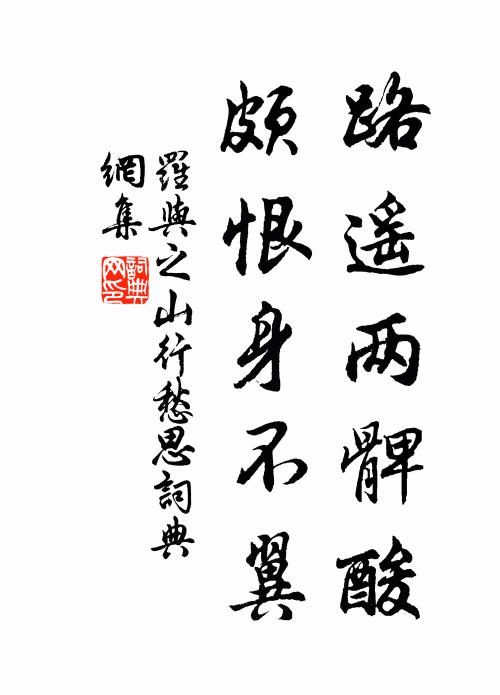 路遥两髀酸
頗恨身不翼
羅與之山行愁思詞典
網集
詞典網印